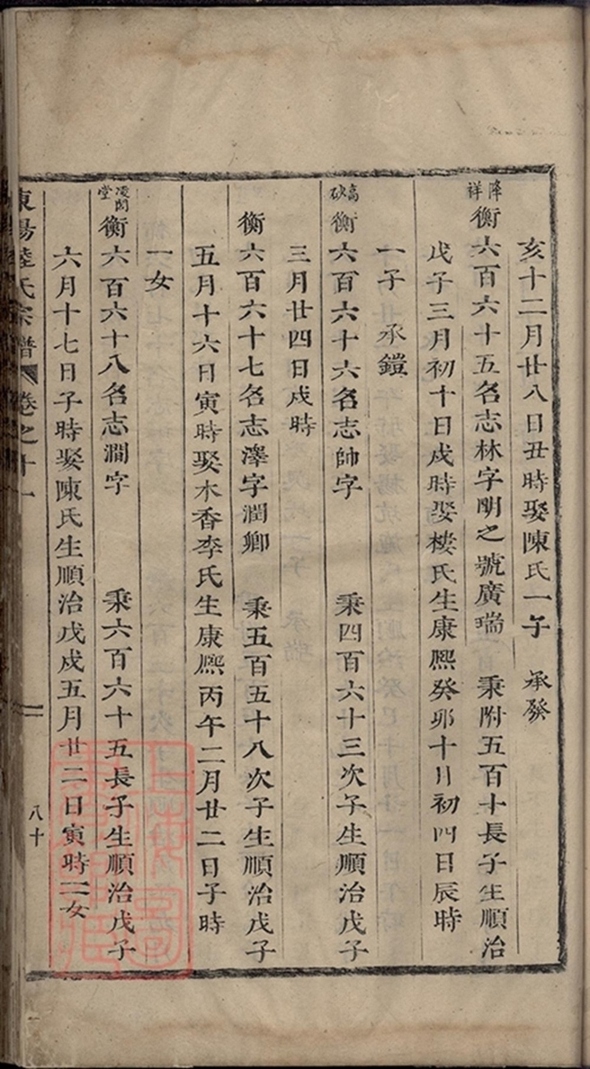 亥十二月廿八日丑時娶陳氏一子 承發
降祥 衡六百六十五名志林字明之號廣瑞 秉附五百十長子生順治
戊子三月初十日戌時娶樓氏生康熙癸卯十月初四日辰時
一子 承鎧
高砍 衡六百六十六名志帥字 秉四百六十三次子生順治戊子
三月廿四日戌時
衡六百六十七名志澤字潤卿 秉五百五十八次子生順治戊子
五月十六日寅時娶木香李氏生康熙丙午二月廿二日子時
一女
堂 衡六百六十八名志澗字 秉六百六十五長子生順治戊子
六月十七日子時娶陳氏生順治戊戌五月廿二日寅時二女
東陽 氏宗譜 卷之十一 八十